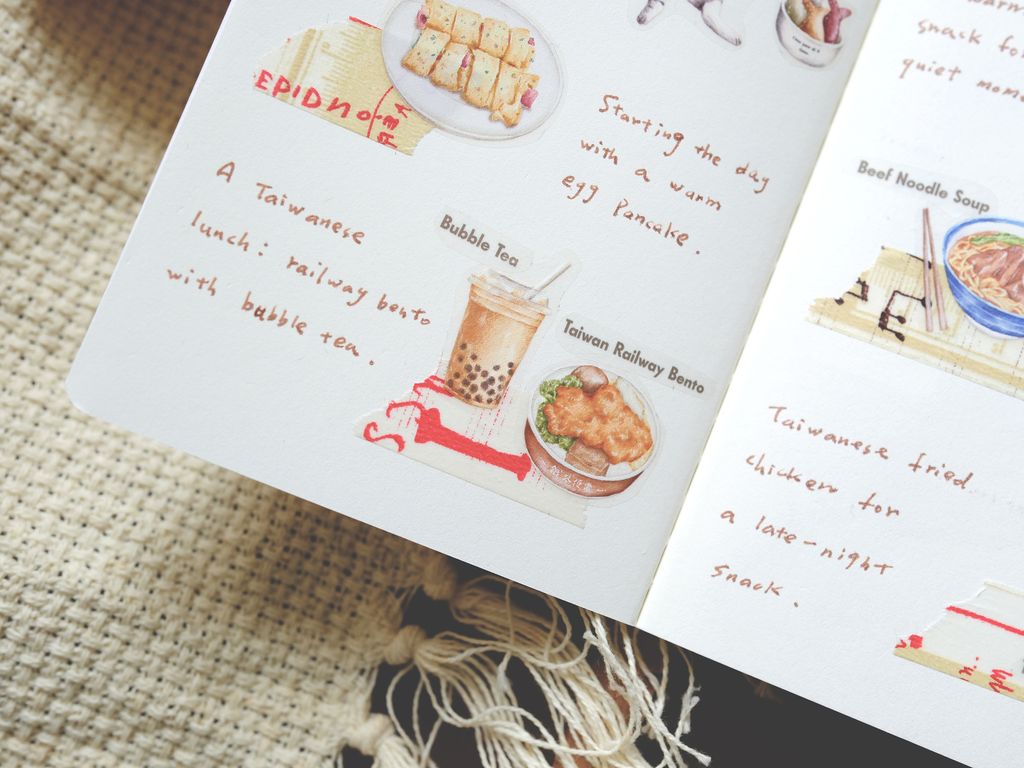 EPIDNO
Starting the day
with a warm
egg Pancake.
A Taiwanese
lunch: railway bento
with bubble tea.
Bubble Tea
Taiwan Railway Bento
snack for
quiet
Beef Noodle Soup
Taiwanese fried
chicken for
a late-night
snack.